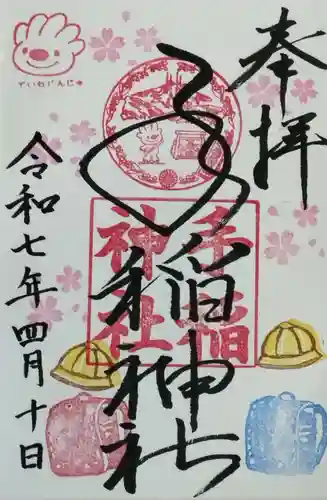 奉拝
手稲神社
手稲
神社
ていねじんじゃ
令和七年四月十日